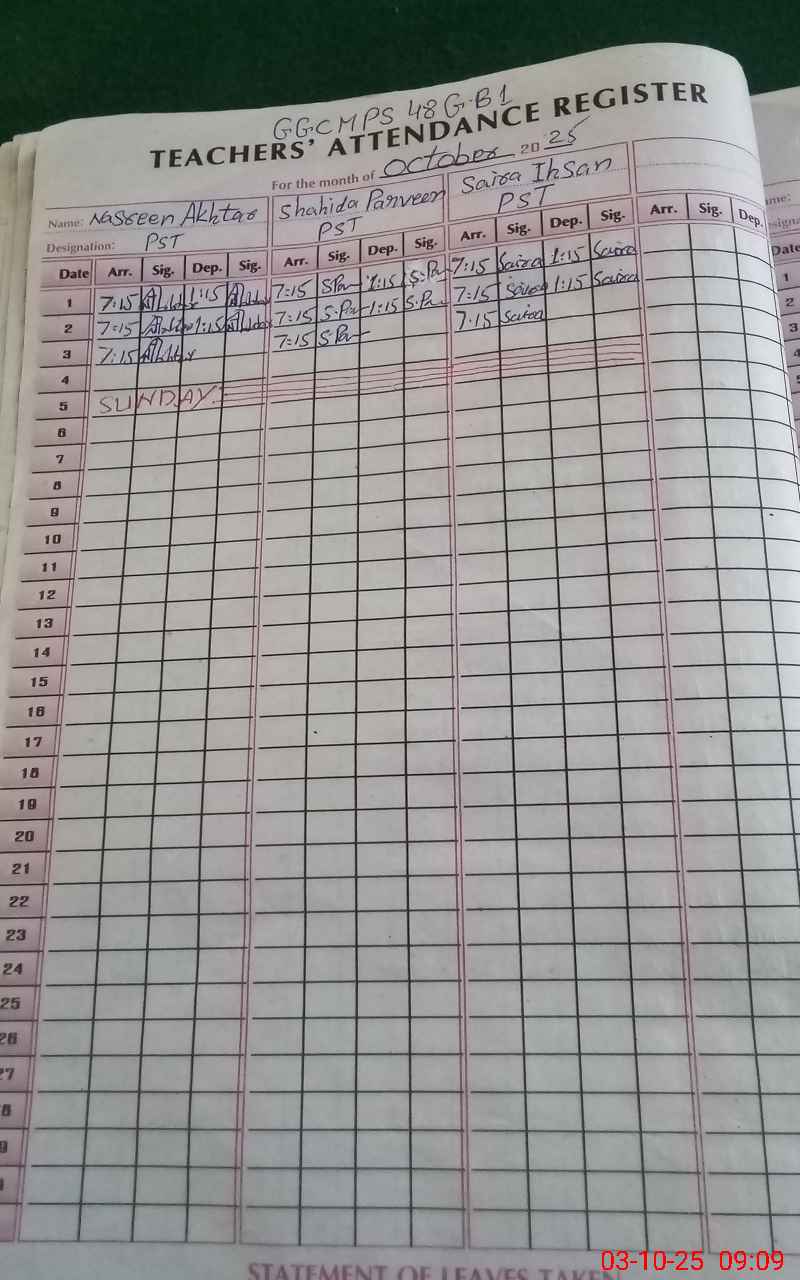 GGCMPS 48 G.B 1
TEACHERS' ATTENDANCE REGISTER
For the month of October 2025
Name: Nasreen Akhtar Shahida Parveen Saira Ihsan
Designation: PST PST PST
Date Arr. Sig. Dep. Sig. Arr. Sig. Dep. Sig. Arr. Sig. Dep. Sig. Arr. Sig. Dep.
1 7:15 1:15 7:15 S.Par 1:15 S.Par 7:15 Saira 1:15 Saira
2 7:15 1:15 7:15 S.Par 1:15 S.Par 7:15 Saira 1:15 Saira
3 7:15 7:15 S.Par 7:15 Saira
4
5 SUNDAY
6
7
8
9
10
11
12
13
14
15
16
17
18
19
20
21
22
23
24
25
26
27
8
9
STATEMENT OF LEAVES TAKEN
Date
1
2
3
4
03-10-25 09:09